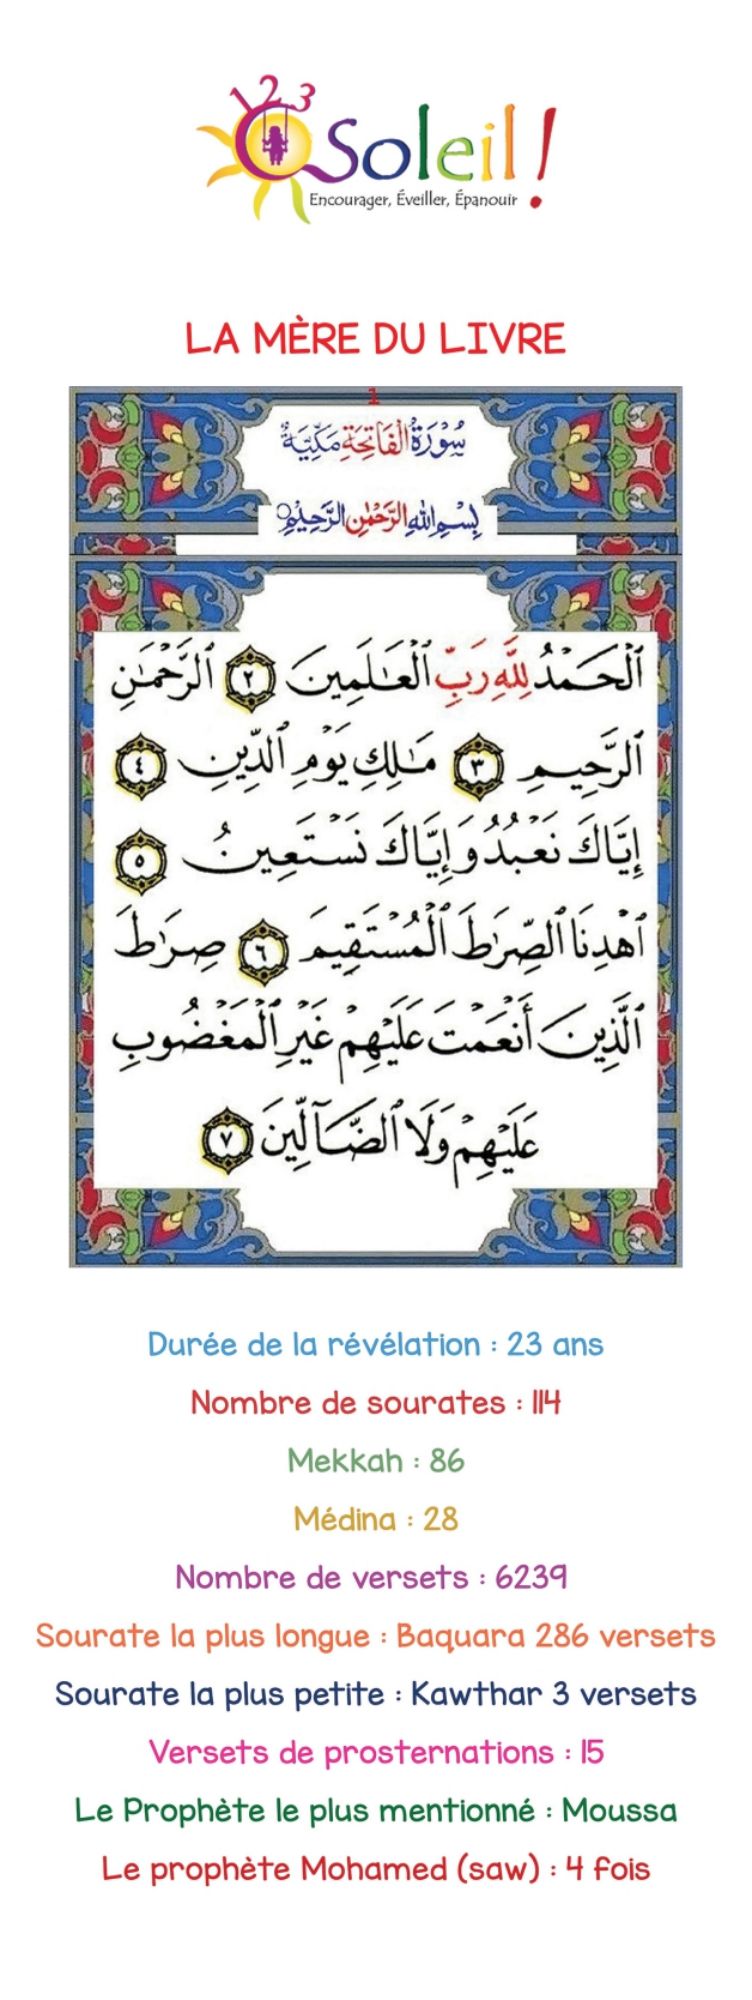 123 Soleil !
Encourager, Éveiller, Épanouir
LA MÈRE DU LIVRE
1
سُوْرَةُ الْفَاتِحَةِ مَكِّيَّةٌ
بِسْمِ اللهِ الرَّحْمٰنِ الرَّحِيْمِ
ٱلْحَمْدُ لِلَّهِ رَبِّ ٱلْعَـٰلَمِينَ ٢ ٱلرَّحْمَـٰنِ
ٱلرَّحِيمِ ٣ مَـٰلِكِ يَوْمِ ٱلدِّينِ ٤
إِيَّاكَ نَعْبُدُ وَإِيَّاكَ نَسْتَعِينُ ٥
ٱهْدِنَا ٱلصِّرَٰطَ ٱلْمُسْتَقِيمَ ٦ صِرَٰطَ
ٱلَّذِينَ أَنْعَمْتَ عَلَيْهِمْ غَيْرِ ٱلْمَغْضُوبِ
عَلَيْهِمْ وَلَا ٱلضَّآلِّينَ ٧
Durée de la révélation : 23 ans
Nombre de sourates : 114
Mekkah : 86
Médina : 28
Nombre de versets : 6239
Sourate la plus longue : Baquara 286 versets
Sourate la plus petite : Kawthar 3 versets
Versets de prosternations : 15
Le Prophète le plus mentionné : Moussa
Le prophète Mohamed (saw) : 4 fois